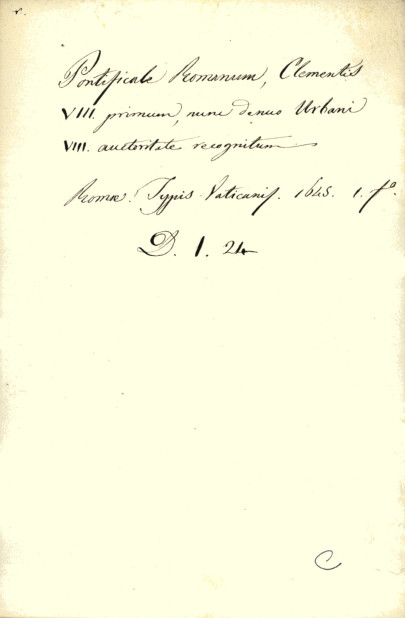 Pontificale Romanum, Clementis
VIII. primum, nunc denuo Urbani
VIII. auctoritate recognitum
Romæ. Typis Vaticanis. 1645. 1. fº.
D. 1. 24
C